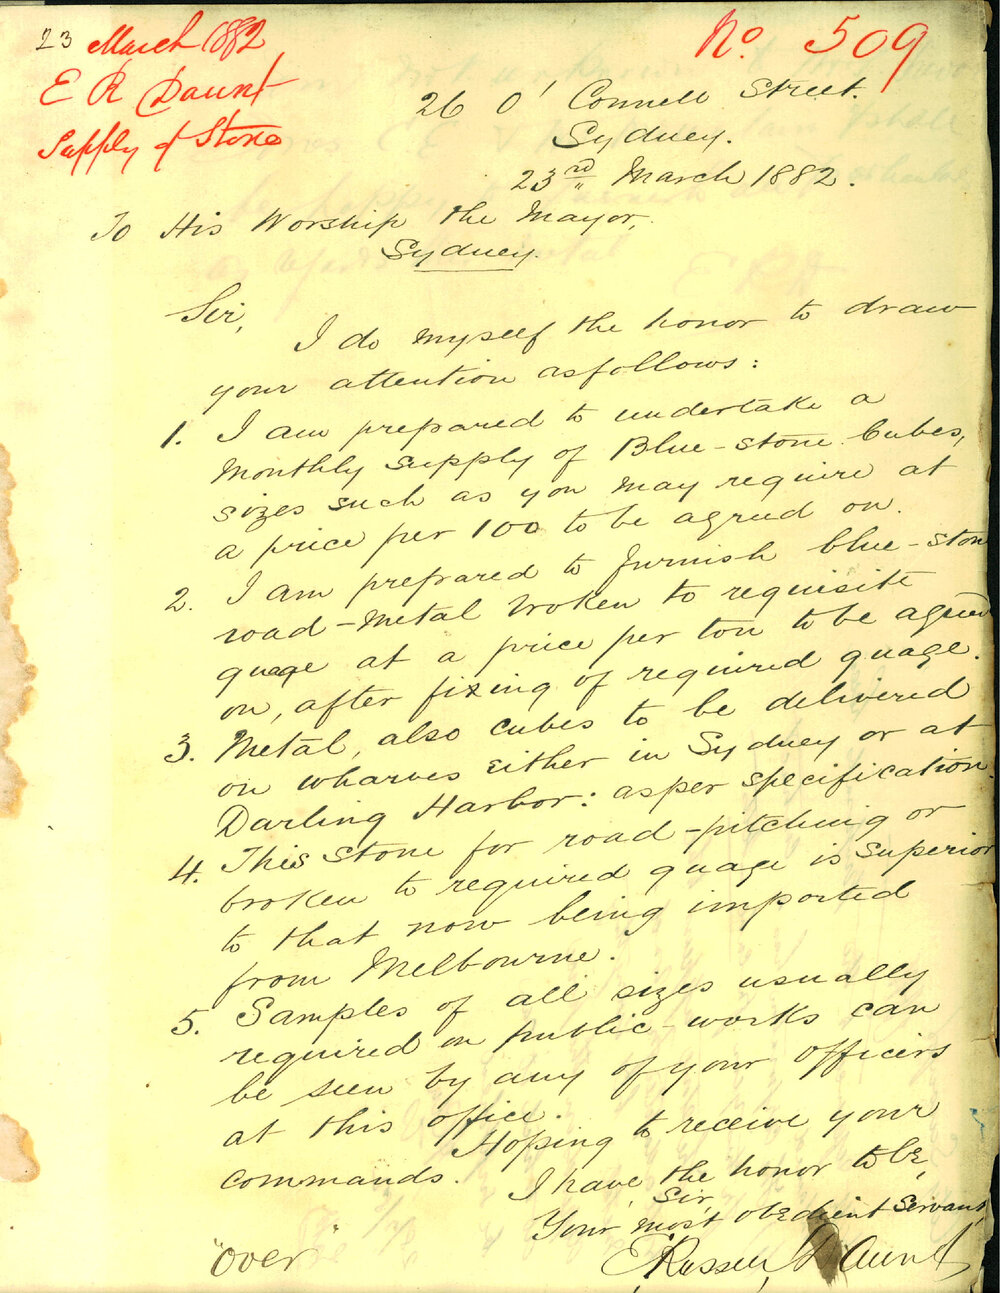 23 March 1882
E R Daunt
Supply of Stone
No. 509
26 O'Connell Street.
Sydney.
23rd March 1882.
To His Worship the Mayor,
Sydney.
Sir,
I do myself the honor to draw
your attention as follows:
1. I am prepared to undertake a
Monthly supply of Blue-stone Cubes,
sizes such as you may require at
a price per 100 to be agreed on.
2. I am prepared to furnish blue-stone
road-Metal broken to requisite
guage at a price per ton to be agreed
on, after fixing of required guage.
3. Metal, also cubes to be delivered
on wharves either in Sydney or at
Darling Harbor: as per specification.
4. This Stone for road-pitching or
broken to required guage is superior
to that now being imported
from Melbourne.
5. Samples of all sizes usually
required on public-works can
be seen by any of your officers
at this office.
Hoping to receive your
commands.
I have the honor to be,
Sir,
Your most obedient servant
E. Russell Daunt
"over"